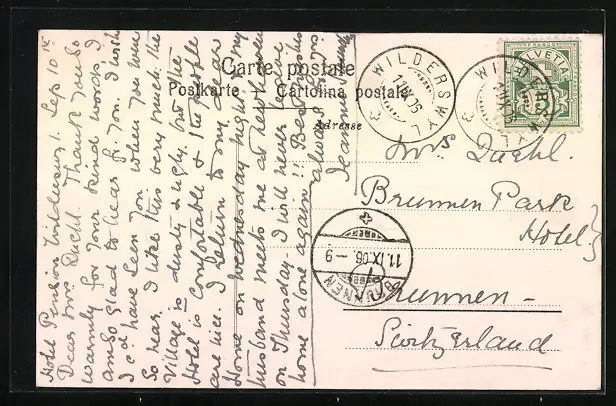 Carte postale
Postkarte Cartolina postale
Adresse
WILDERSWYL
11.IX.06
WILDERSWYL
HELVETIA
BRUNNEN
11.IX.06 — 9
Mrs.
Brunnen Park
Hotel.
Brunnen —
Switzerland
Hotel Pension Wilderswyl Sep 10th
Dear Mrs Thank you so
warmly for your kind words. I
am so glad to hear fr. you. I wish
I cd have seen you when you were
so near. I like this very much, the
Village is dusty & ugly, but the
Hotel is comfortable & the people
are nice. I return to my dear
Home on Wednesday night & my
husband meets me at
on Thursday - I will never leave
home alone again!! Best wishes
always yrs.